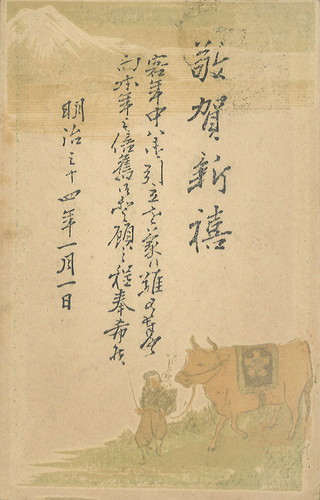 敬賀新禧
客年中ハ御引立を蒙り難有
尚本年も倍舊御愛顧之程奉希候
明治三十四年一月一日